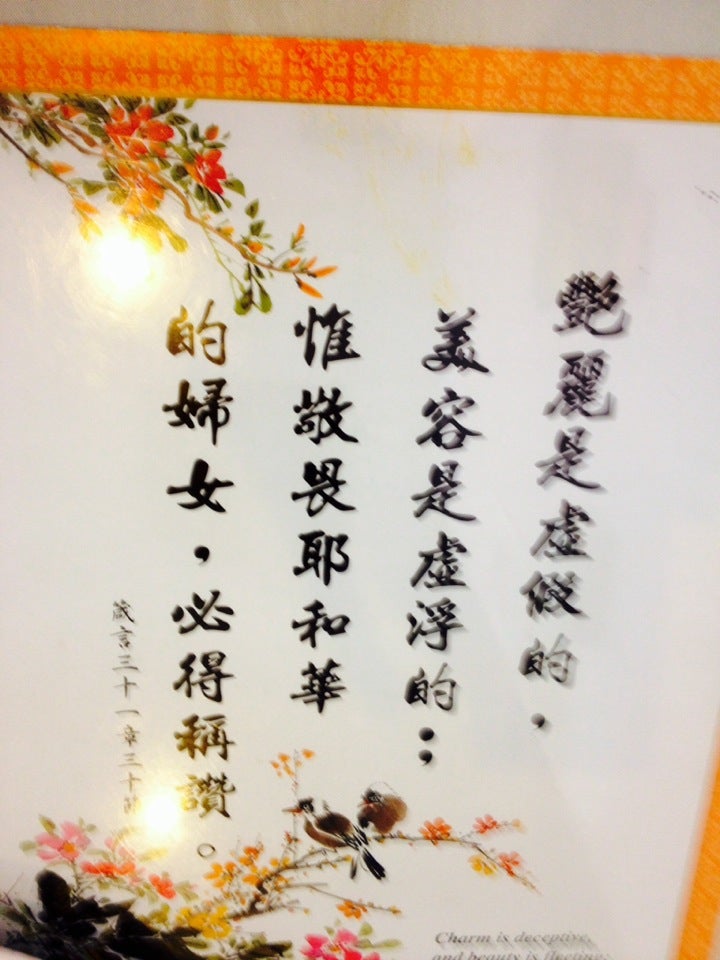 艷麗是虛假的，
美容是虛浮的；
惟敬畏耶和華
的婦女，必得稱讚。
箴言三十一章三十節
Charm is deceptive,
and beauty is fleeting;